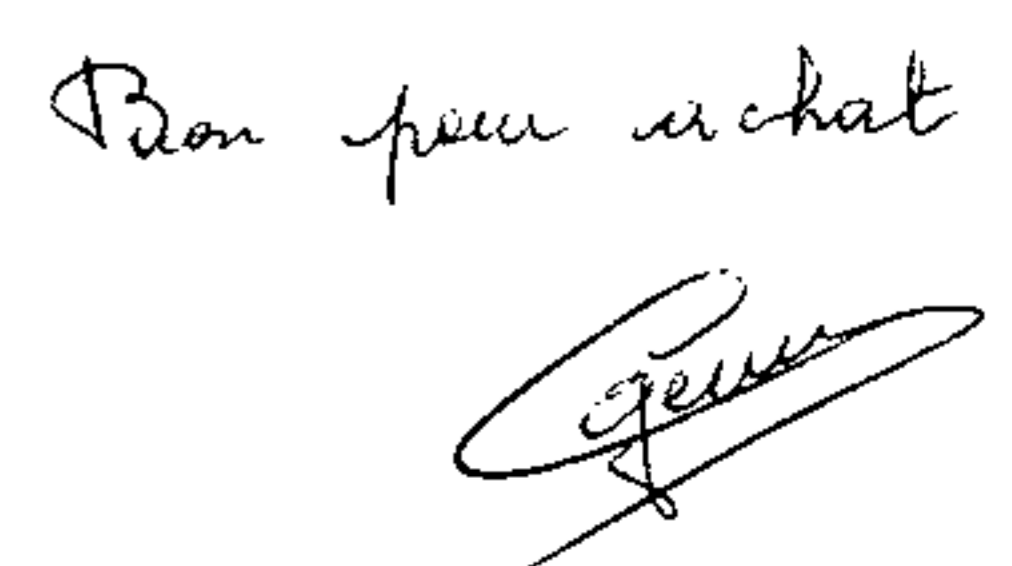 Bon pour achat